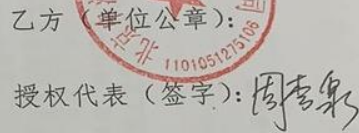 乙方（单位公章）：
北京
1101051275106
司
授权代表（签字）：周